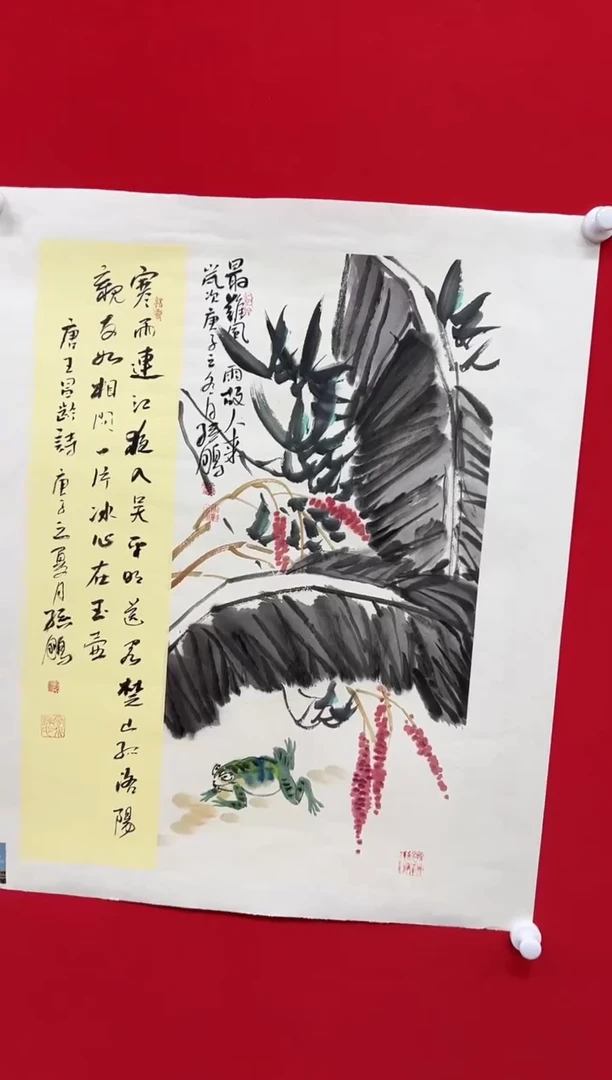 最難風雨故人来
嵗次庚子之冬月孫鵬
寒雨連江夜入吴平明送客楚山孤洛陽
親友如相问一片冰心在玉壺
唐王昌龄詩 庚子之夏月孫鵬